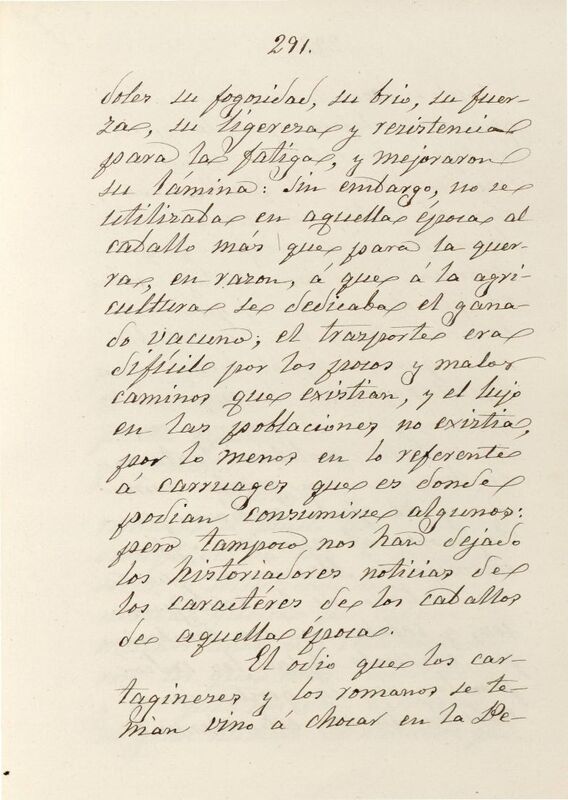 291.
doles su fogosidad, su brio, su fuer-
za, su ligereza y resistencia
para la fatiga, y mejoraron
su lámina: Sin embargo, no se
utilizaba en aquella época al
caballo más que para la guer-
ra, en razon, á que á la agri-
cultura se dedicaba el gana-
do vacuno; el trasporte era
difícil por los pocos y malos
caminos que existian, y el lujo
en las poblaciones no existia,
por lo menos en lo referente
á carruages que es donde
podian consumirse algunos:
pero tampoco nos han dejado
los historiadores noticias de
los caractéres de los caballos
de aquella época.
El odio que los car-
tagineses y los romanos se te-
nian vino á chocar en la Pe-